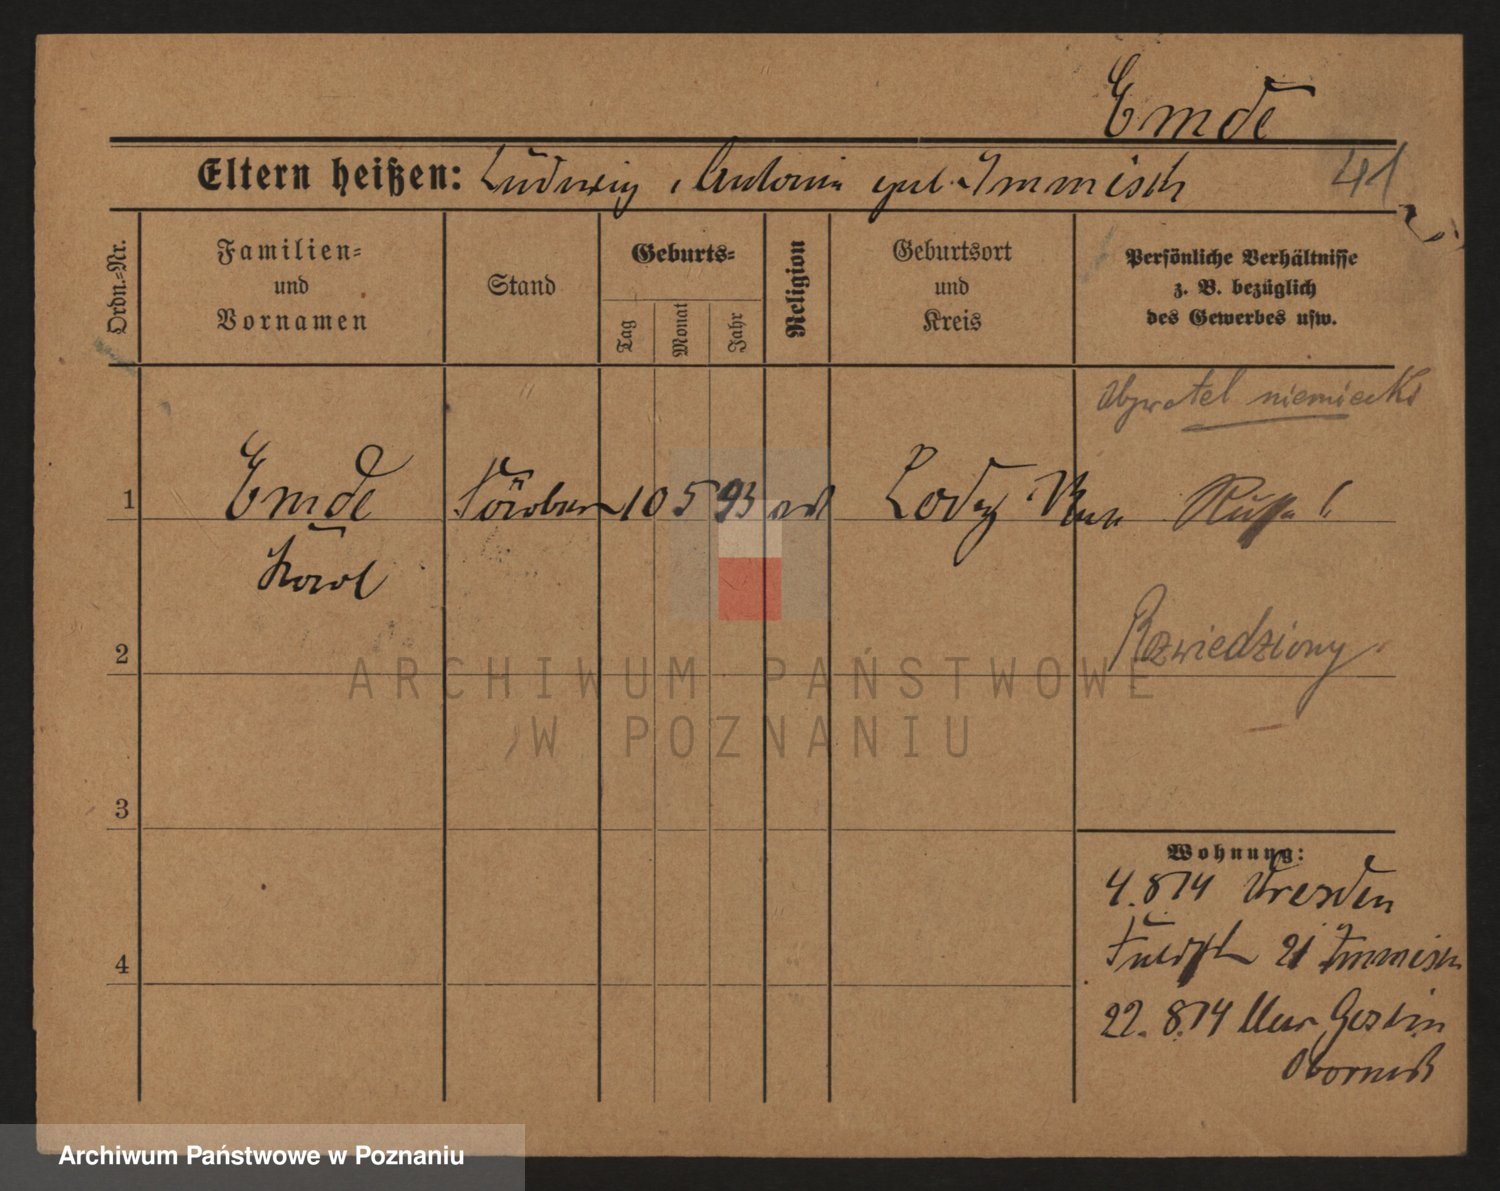 Emde
Eltern heißen: Ludwig, Antonie geb. Immisch
41
Ordn.=Nr.
Familien=
und
Vornamen
Stand
Geburts=
Tag
Monat
Jahr
Religion
Geburtsort
und
Kreis
Persönliche Verhältnisse
z. B. bezüglich
des Gewerbes usw.
Obywatel niemiecki
1 Emde 10 5 93 Lodz Russ
Karl
Rozwiedziony
2
3
4
Wohnung:
4.8 14 Dresden
21 Immisch
22.8.14 Goslin
Obornik
ARCHIWUM PAŃSTWOWE
W POZNANIU
Archiwum Państwowe w Poznaniu